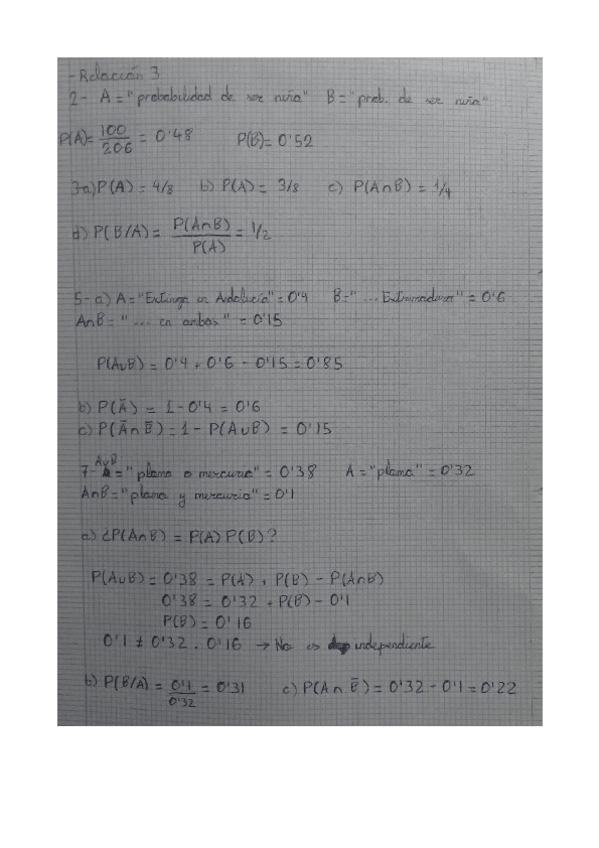 - Relación 3
2- A = "probabilidad de ser niña" B = "prob. de ser niño"
P(A) = 100/206 = 0'48 P(B) = 0'52
3-a) P(A) = 4/8 b) P(A) = 3/8 c) P(A∩B) = 1/4
d) P(B/A) = P(A∩B)/P(A) = 1/2
5- a) A = "Extinga en Andalucía" = 0'4 B = "... Extremadura" = 0'6
A∩B = "... en ambos" = 0'15
P(A∪B) = 0'4 + 0'6 - 0'15 = 0'85
b) P(Ā) = 1 - 0'4 = 0'6
c) P(Ā∩B̄) = 1 - P(A∪B) = 0'15
7- A∪B = "plomo o mercurio" = 0'38 A = "plomo" = 0'32
A∩B = "plomo y mercurio" = 0'1
a) ¿P(A∩B) = P(A) P(B)?
P(A∪B) = 0'38 = P(A) + P(B) - P(A∩B)
0'38 = 0'32 + P(B) - 0'1
P(B) = 0'16
0'1 ≠ 0'32 . 0'16 → No es independiente
b) P(B/A) = 0'1/0'32 = 0'31 c) P(A∩B̄) = 0'32 - 0'1 = 0'22